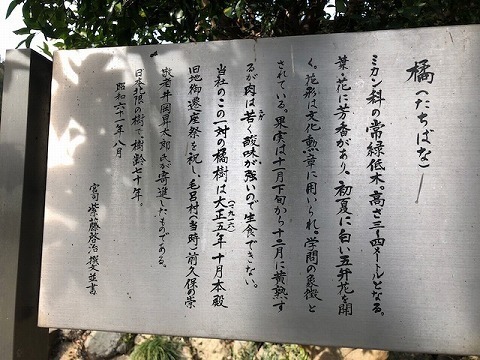 橘(たちばな)
ミカン科の常緑低木。高さ三〜四メートルとなる。
葉・花に芳香があり、初夏に白い五弁花を開
く。花形は文化勲章に用いられ。学問の象徴と
されている。果実は十一月下旬から十二月に黄熟す
るが肉は苦く酸味が強いので生食できない。
当社のこの一対の橘樹は大正五年(一九一六)十月本殿
旧地御遷座祭を祝し、毛呂村(当時)前久保の崇
敬者井岡早太郎氏が寄進したものである。
日本北限の樹で樹齢七十年。
昭和六十一年八月
宮司紫藤啓治撰文並書